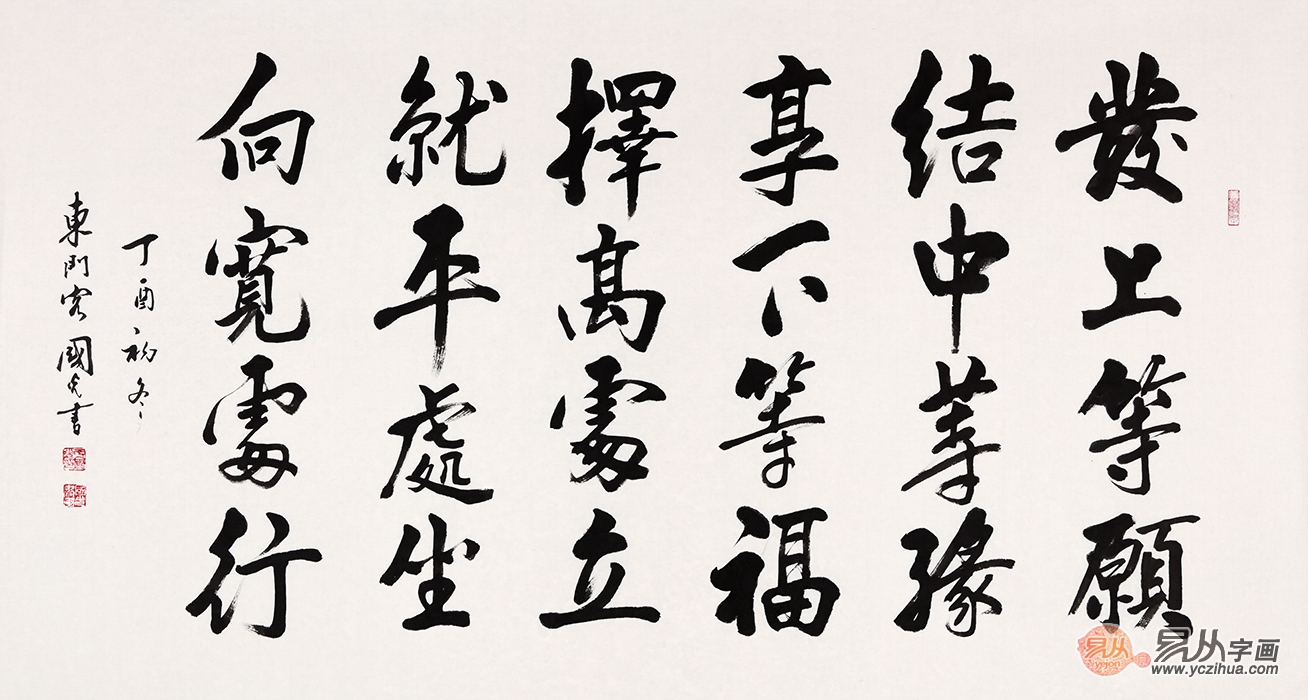 發上等願
結中等緣
享下等福
擇高處立
就平處坐
向寬處行
丁酉初冬
東門客國光書
易从
yicon
易从字画
www.yczihua.com